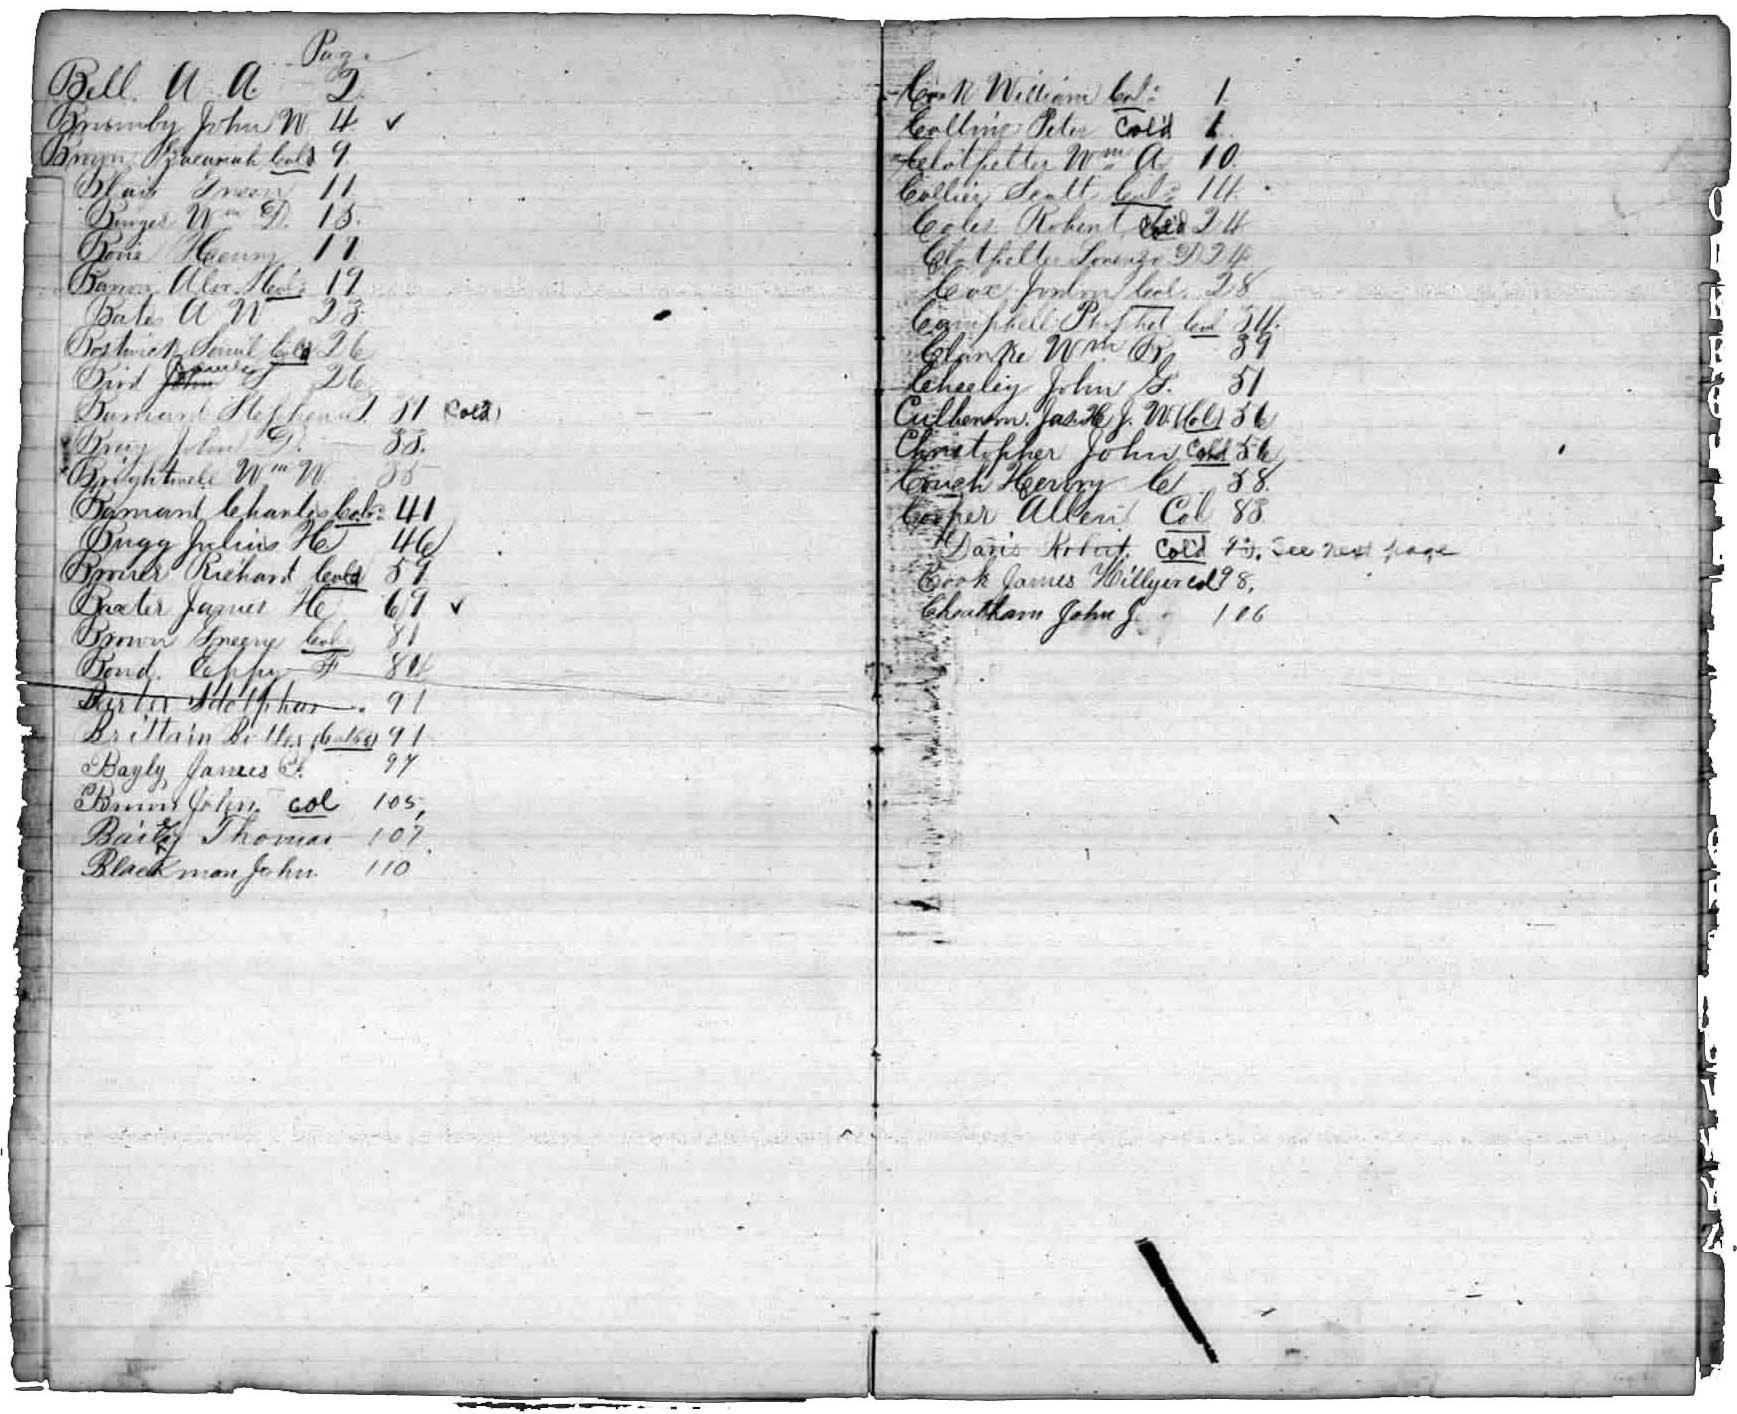 Page
Bell. A. A. 2.
Brumby John W. 4. ✓
Zacariah Cold 9.
Blair Green 11
Binges Wm D. 15.
Henry 17
Barron Alex H Col. 19
Bates A N 23.
Bostwick Col'd 26
Bird John 26
Barnard Stephen 31 (Col'd)
Bray John D. 33.
Brightwell Wm W. 35
Barnard Charles Col. 41
Bugg Julius H 46
Richard Col'd 59
Baxter James H 69 ✓
Brown Greene Col. 81
Bond. Eppy F 84
Adolphus 91
Brittain 91
Bayly James S. 97
Brown John. col 105,
Bailey Thomas 107
Blackman John. 110
Cook William Col. 1
Collins Peter Col'd 1.
Clotfelter Wm A 10.
Collier Scott Col. 14.
Coles Robert Col'd 24
Clotfelter Lorenzo D 24
Cox Jordon Col. 28
Campbell Col 34.
Clarke Wm R 39
Cheeley John S. 51
Jas. H J. W. (Col) 56
Christopher John Col'd 56
Couch Henry C 58.
Cooper Allen Col 88
Davis Robert. Col'd See next page
Cook James Hillyer col 98,
Cheatham John J. 106